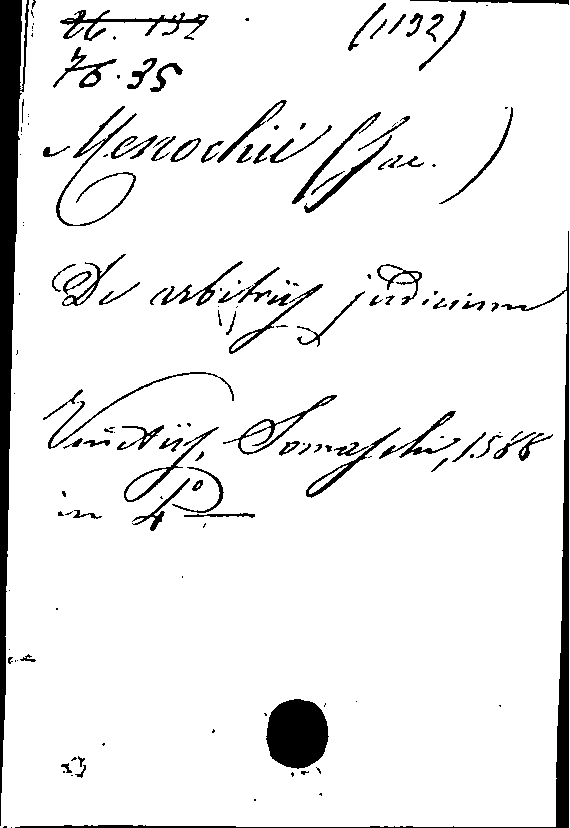 26. 132 (1132)
76.35
Menochii (Jac. )
De arbitrijs judicium
Venetijs, Somaschi, 1588
in 4º